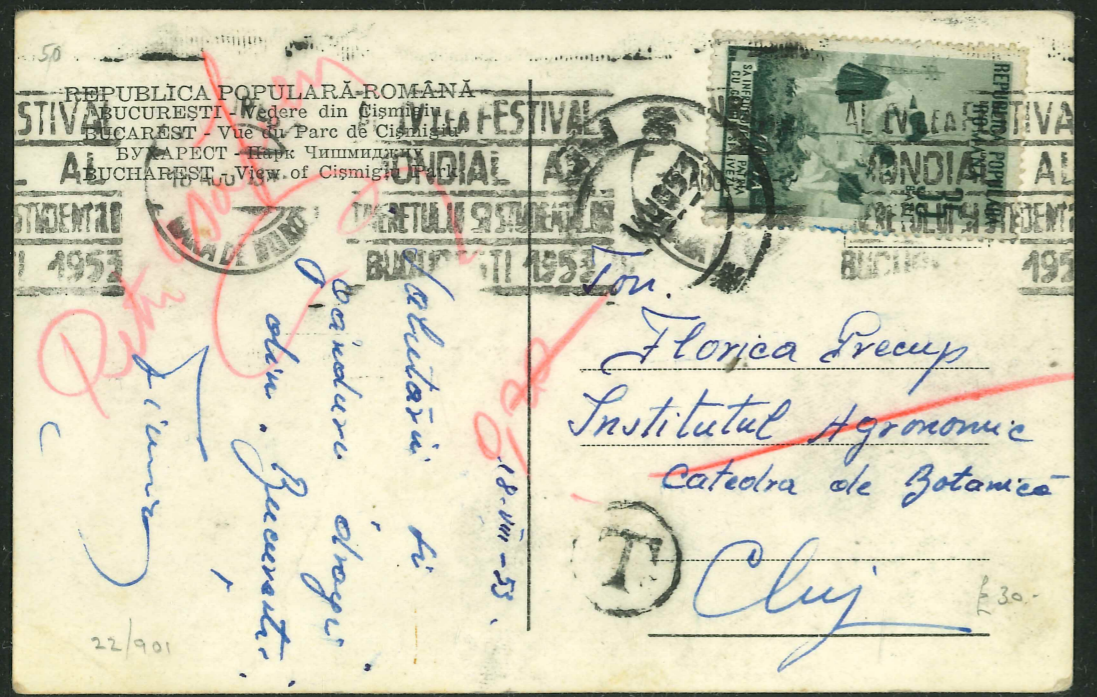 50
REPUBLICA POPULARĂ ROMÂNĂ
BUCUREȘTI - Vedere din Cișmigiu
BUCAREST - Vue du Parc de Cișmigiu
БУХАРЕСТ - Парк Чишмиджиу
BUCHAREST - View of Cișmigiu Park
AL IV LEA FESTIVAL
MONDIAL AL
TINERETULUI ȘI STUDENȚILOR
BUCUREȘTI 1953
REPUBLICA POPULARĂ
ROMÂNĂ
Salutări și
gânduri dragi
din București
18-VIII-53.
Tov.
Florica Precup
Institutul Agronomic
Catedra de Botanică
Cluj
T
£30-
22/901